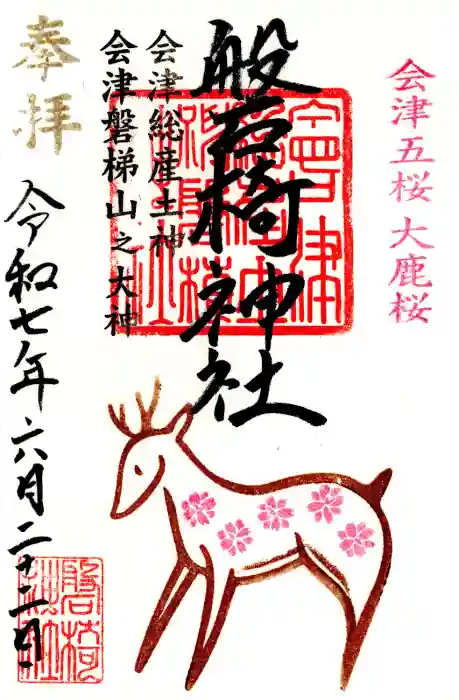 会津五桜 大鹿桜
磐椅神社
会津総産土神
会津磐梯山之大神
奉拝
令和七年六月二十二日
磐椅神社